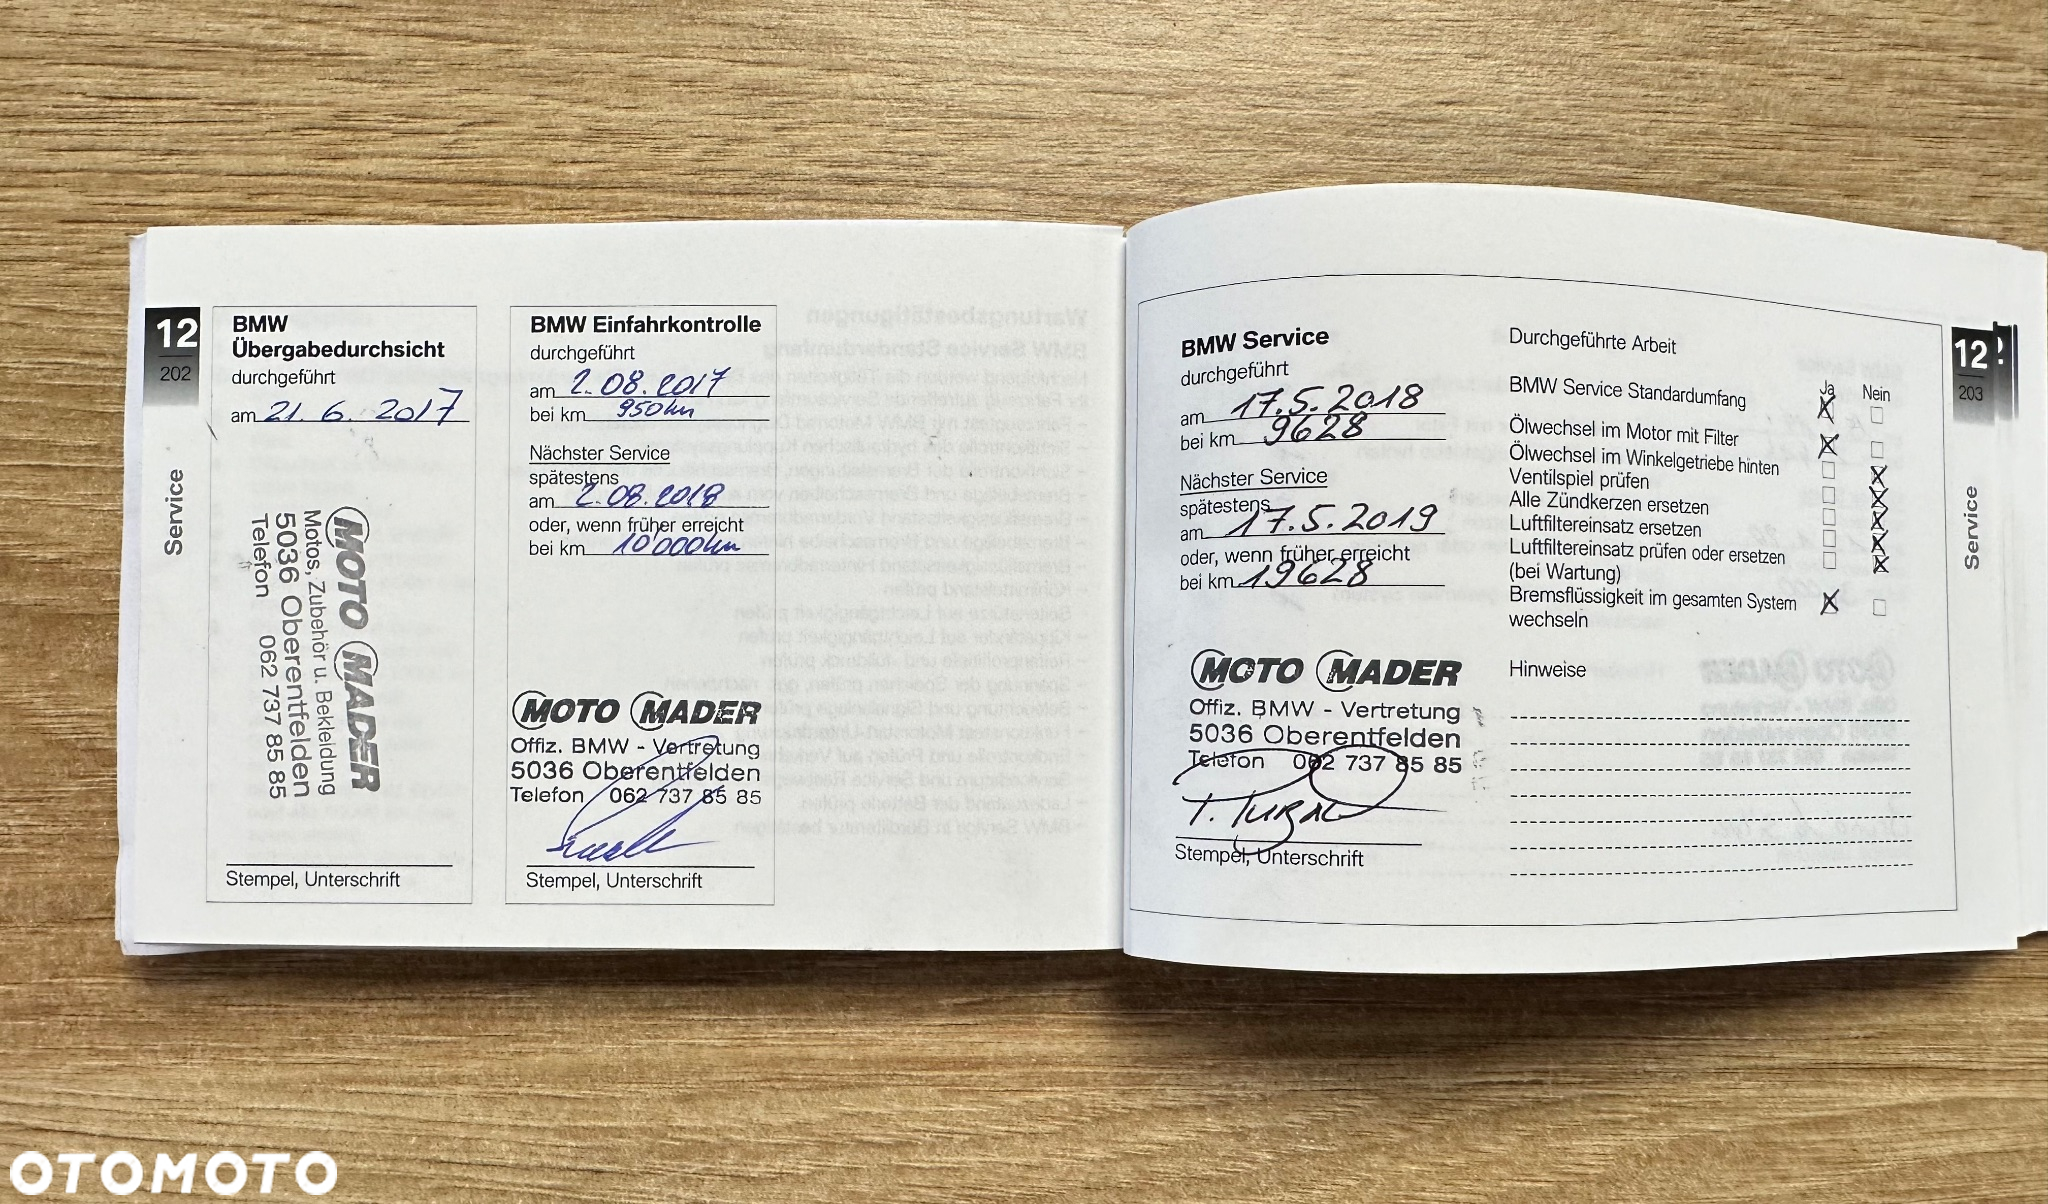 12
202
Service
BMW
Übergabedurchsicht
durchgeführt
am 21. 6. 2017
MOTO MADER
Motos, Zubehör u. Bekleidung
5036 Oberentfelden
Telefon 062 737 85 85
Stempel, Unterschrift
BMW Einfahrkontrolle
durchgeführt
am 2.08.2017
bei km 950km
Nächster Service
spätestens
am 2.08.2018
oder, wenn früher erreicht
bei km 10'000km
MOTO MADER
Offiz. BMW - Vertretung
5036 Oberentfelden
Telefon 062 737 85 85
Stempel, Unterschrift
BMW Service
durchgeführt
am 17.5.2018
bei km 9628
Nächster Service
spätestens
am 17.5.2019
oder, wenn früher erreicht
bei km 19628
MOTO MADER
Offiz. BMW - Vertretung
5036 Oberentfelden
Telefon 062 737 85 85
Stempel, Unterschrift
Durchgeführte Arbeit
Ja Nein
BMW Service Standardumfang
Ölwechsel im Motor mit Filter
Ölwechsel im Winkelgetriebe hinten
Ventilspiel prüfen
Alle Zündkerzen ersetzen
Luftfiltereinsatz ersetzen
Luftfiltereinsatz prüfen oder ersetzen
(bei Wartung)
Bremsflüssigkeit im gesamten System
wechseln
Hinweise
12
203
Service
OTOMOTO